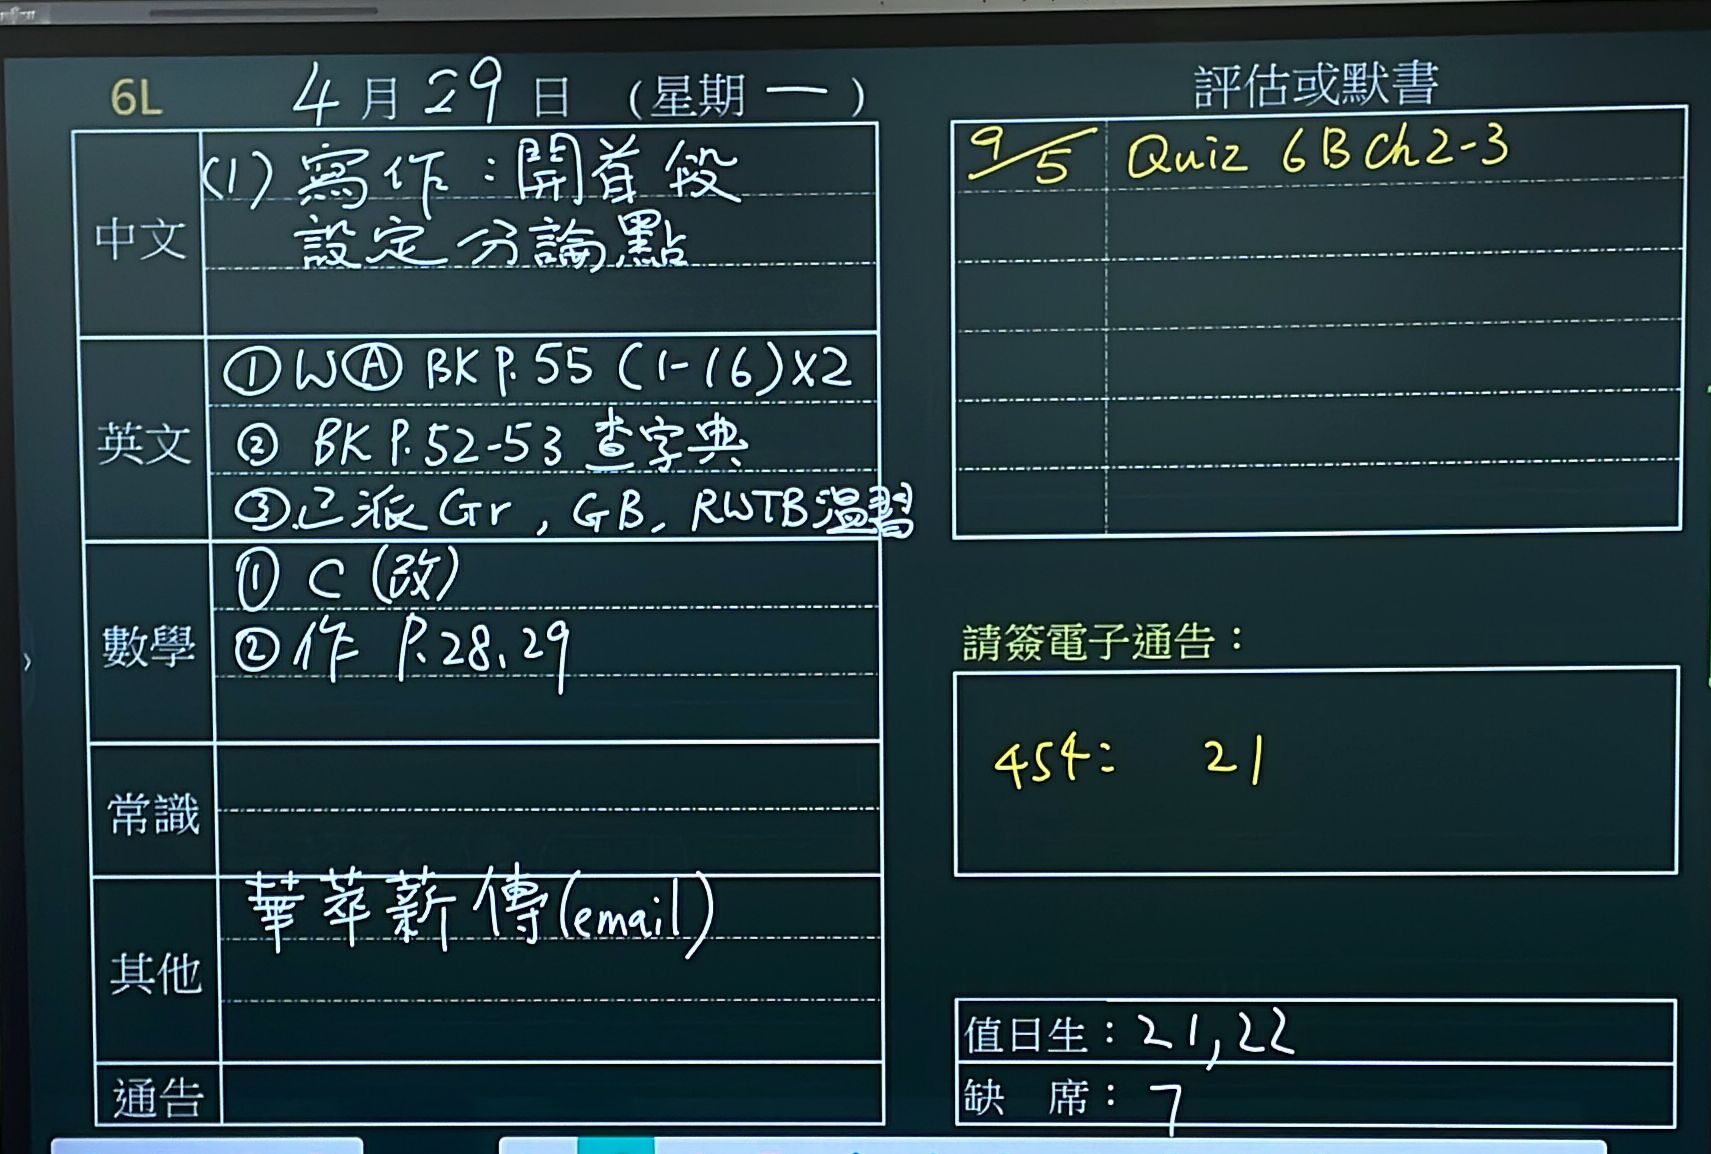 6L 4月29日 (星期一)
中文
(1) 寫作:開首段
設定分論點
英文
① W Ⓐ BK P.55 (1-16)x2
② BK P.52-53 查字典
③ 已派 Gr, GB, RWTB溫習
數學
① C (改)
② 作 P.28、29
常識
其他
華萃薪傳(email)
通告
評估或默書
9/5 Quiz 6B Ch2-3
請簽電子通告:
454: 21
值日生:21,22
缺 席:7